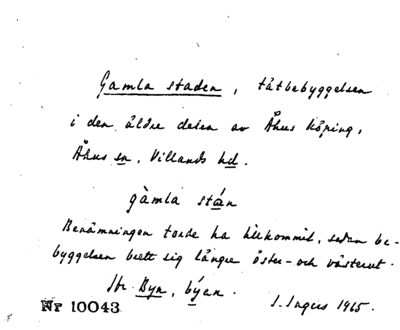 Gamla staden, tätbebyggelsen
i den äldre delen av Åhus köping,
Åhus sn, Villands hd.
gàmla stán
Benämningen torde ha tillkommit, sedan be-
byggelsen brett sig längre öster- och västerut.
Jfr Byn, býan.
I. Ingers 1965.
Nr 10043